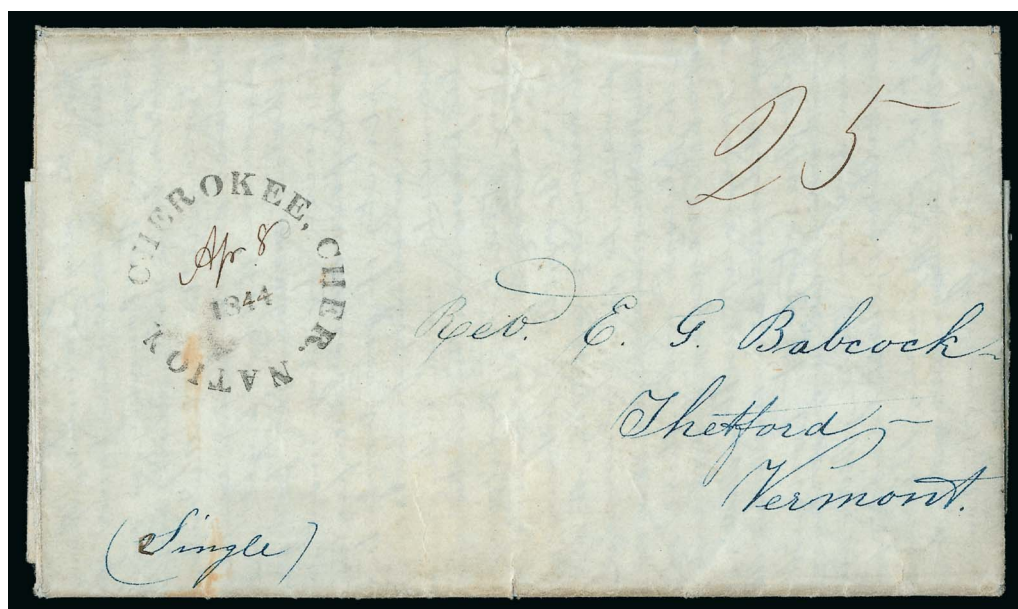 25
CHEROKEE, CHER. NATION
Apr 8
1844
Rev. E. G. Babcock
Thetford
Vermont.
(Single)